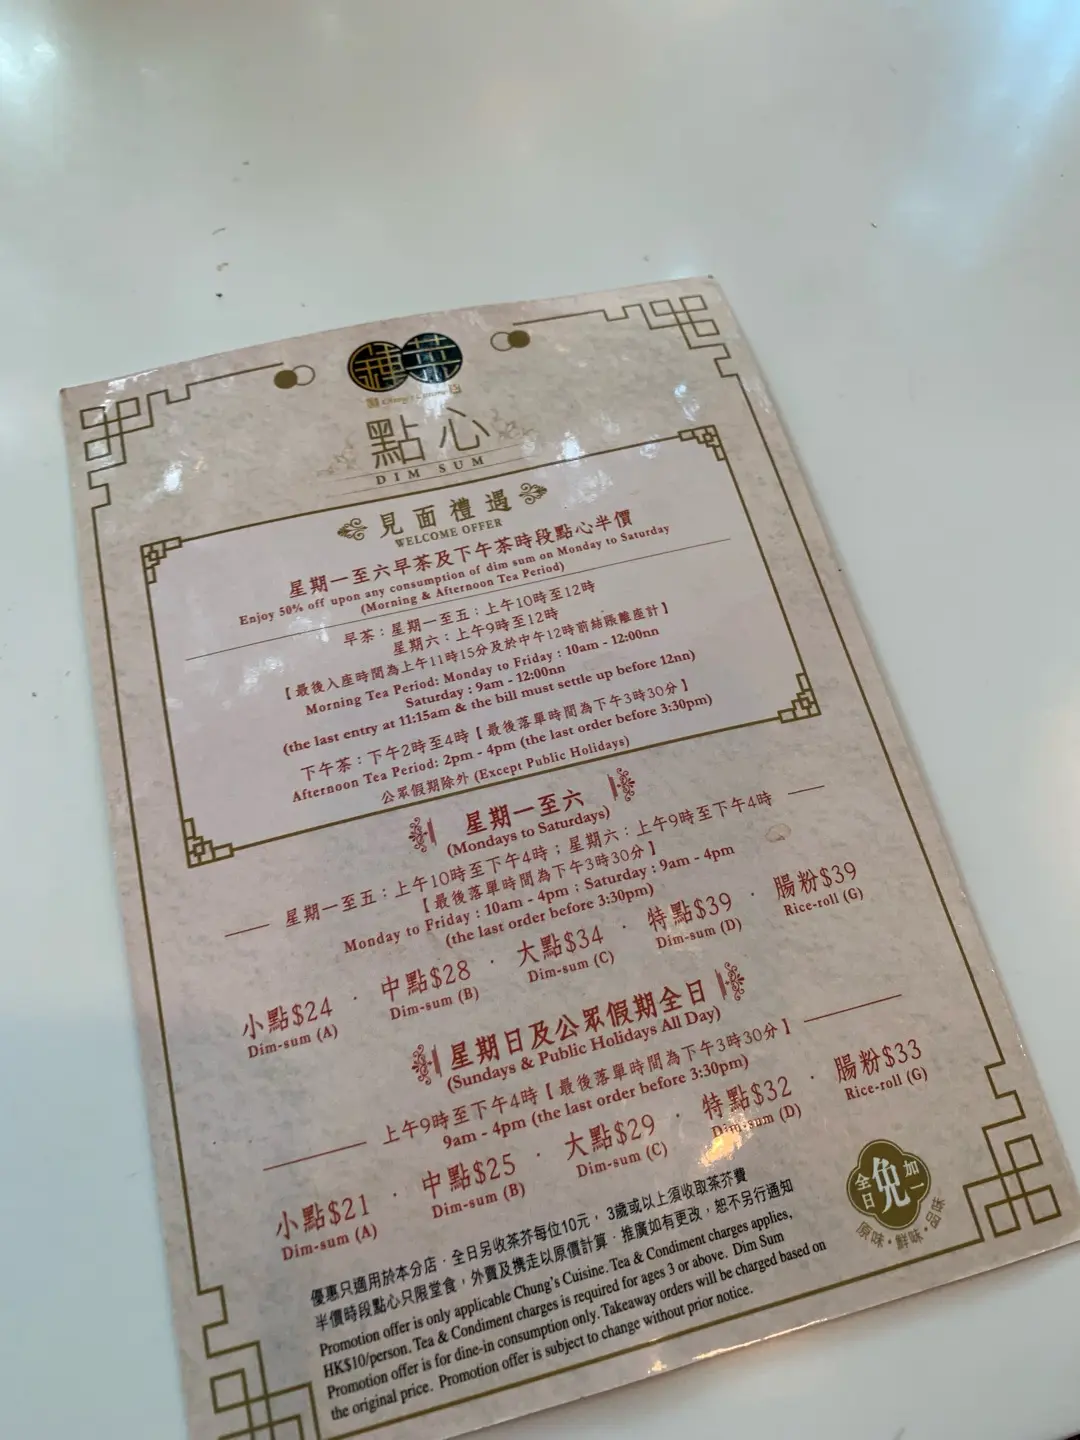 種 華
Chung's Cuisine
點心
DIM SUM
見面禮遇
WELCOME OFFER
星期一至六早茶及下午茶時段點心半價
Enjoy 50% off upon any consumption of dim sum on Monday to Saturday
(Morning & Afternoon Tea Period)
早茶：星期一至五：上午10時至12時
星期六：上午9時至12時
【最後入座時間為上午11時15分及於中午12時前結賬離座計】
Morning Tea Period: Monday to Friday : 10am - 12:00nn
Saturday : 9am - 12:00nn
(the last entry at 11:15am & the bill must settle up before 12nn)
下午茶：下午2時至4時【最後落單時間為下午3時30分】
Afternoon Tea Period: 2pm - 4pm (the last order before 3:30pm)
公眾假期除外 (Except Public Holidays)
星期一至六
(Mondays to Saturdays)
星期一至五：上午10時至下午4時；星期六：上午9時至下午4時
【最後落單時間為下午3時30分】
Monday to Friday : 10am - 4pm ; Saturday : 9am - 4pm
(the last order before 3:30pm)
小點$24 · 中點$28 · 大點$34 · 特點$39 · 腸粉$39
Dim-sum (A) Dim-sum (B) Dim-sum (C) Dim-sum (D) Rice-roll (G)
星期日及公眾假期全日
(Sundays & Public Holidays All Day)
上午9時至下午4時【最後落單時間為下午3時30分】
9am - 4pm (the last order before 3:30pm)
小點$21 · 中點$25 · 大點$29 · 特點$32 · 腸粉$33
Dim-sum (A) Dim-sum (B) Dim-sum (C) Dim-sum (D) Rice-roll (G)
全日免加一
原味·鮮味·
優惠只適用於本分店．全日另收茶芥每位10元，3歲或以上須收取茶芥費
半價時段點心只限堂食，外賣及携走以原價計算．推廣如有更改，恕不另行通知
Promotion offer is only applicable Chung's Cuisine. Tea & Condiment charges applies,
HK$10/person. Tea & Condiment charges is required for ages 3 or above. Dim Sum
Promotion offer is for dine-in consumption only. Takeaway orders will be charged based on
the original price. Promotion offer is subject to change without prior notice.